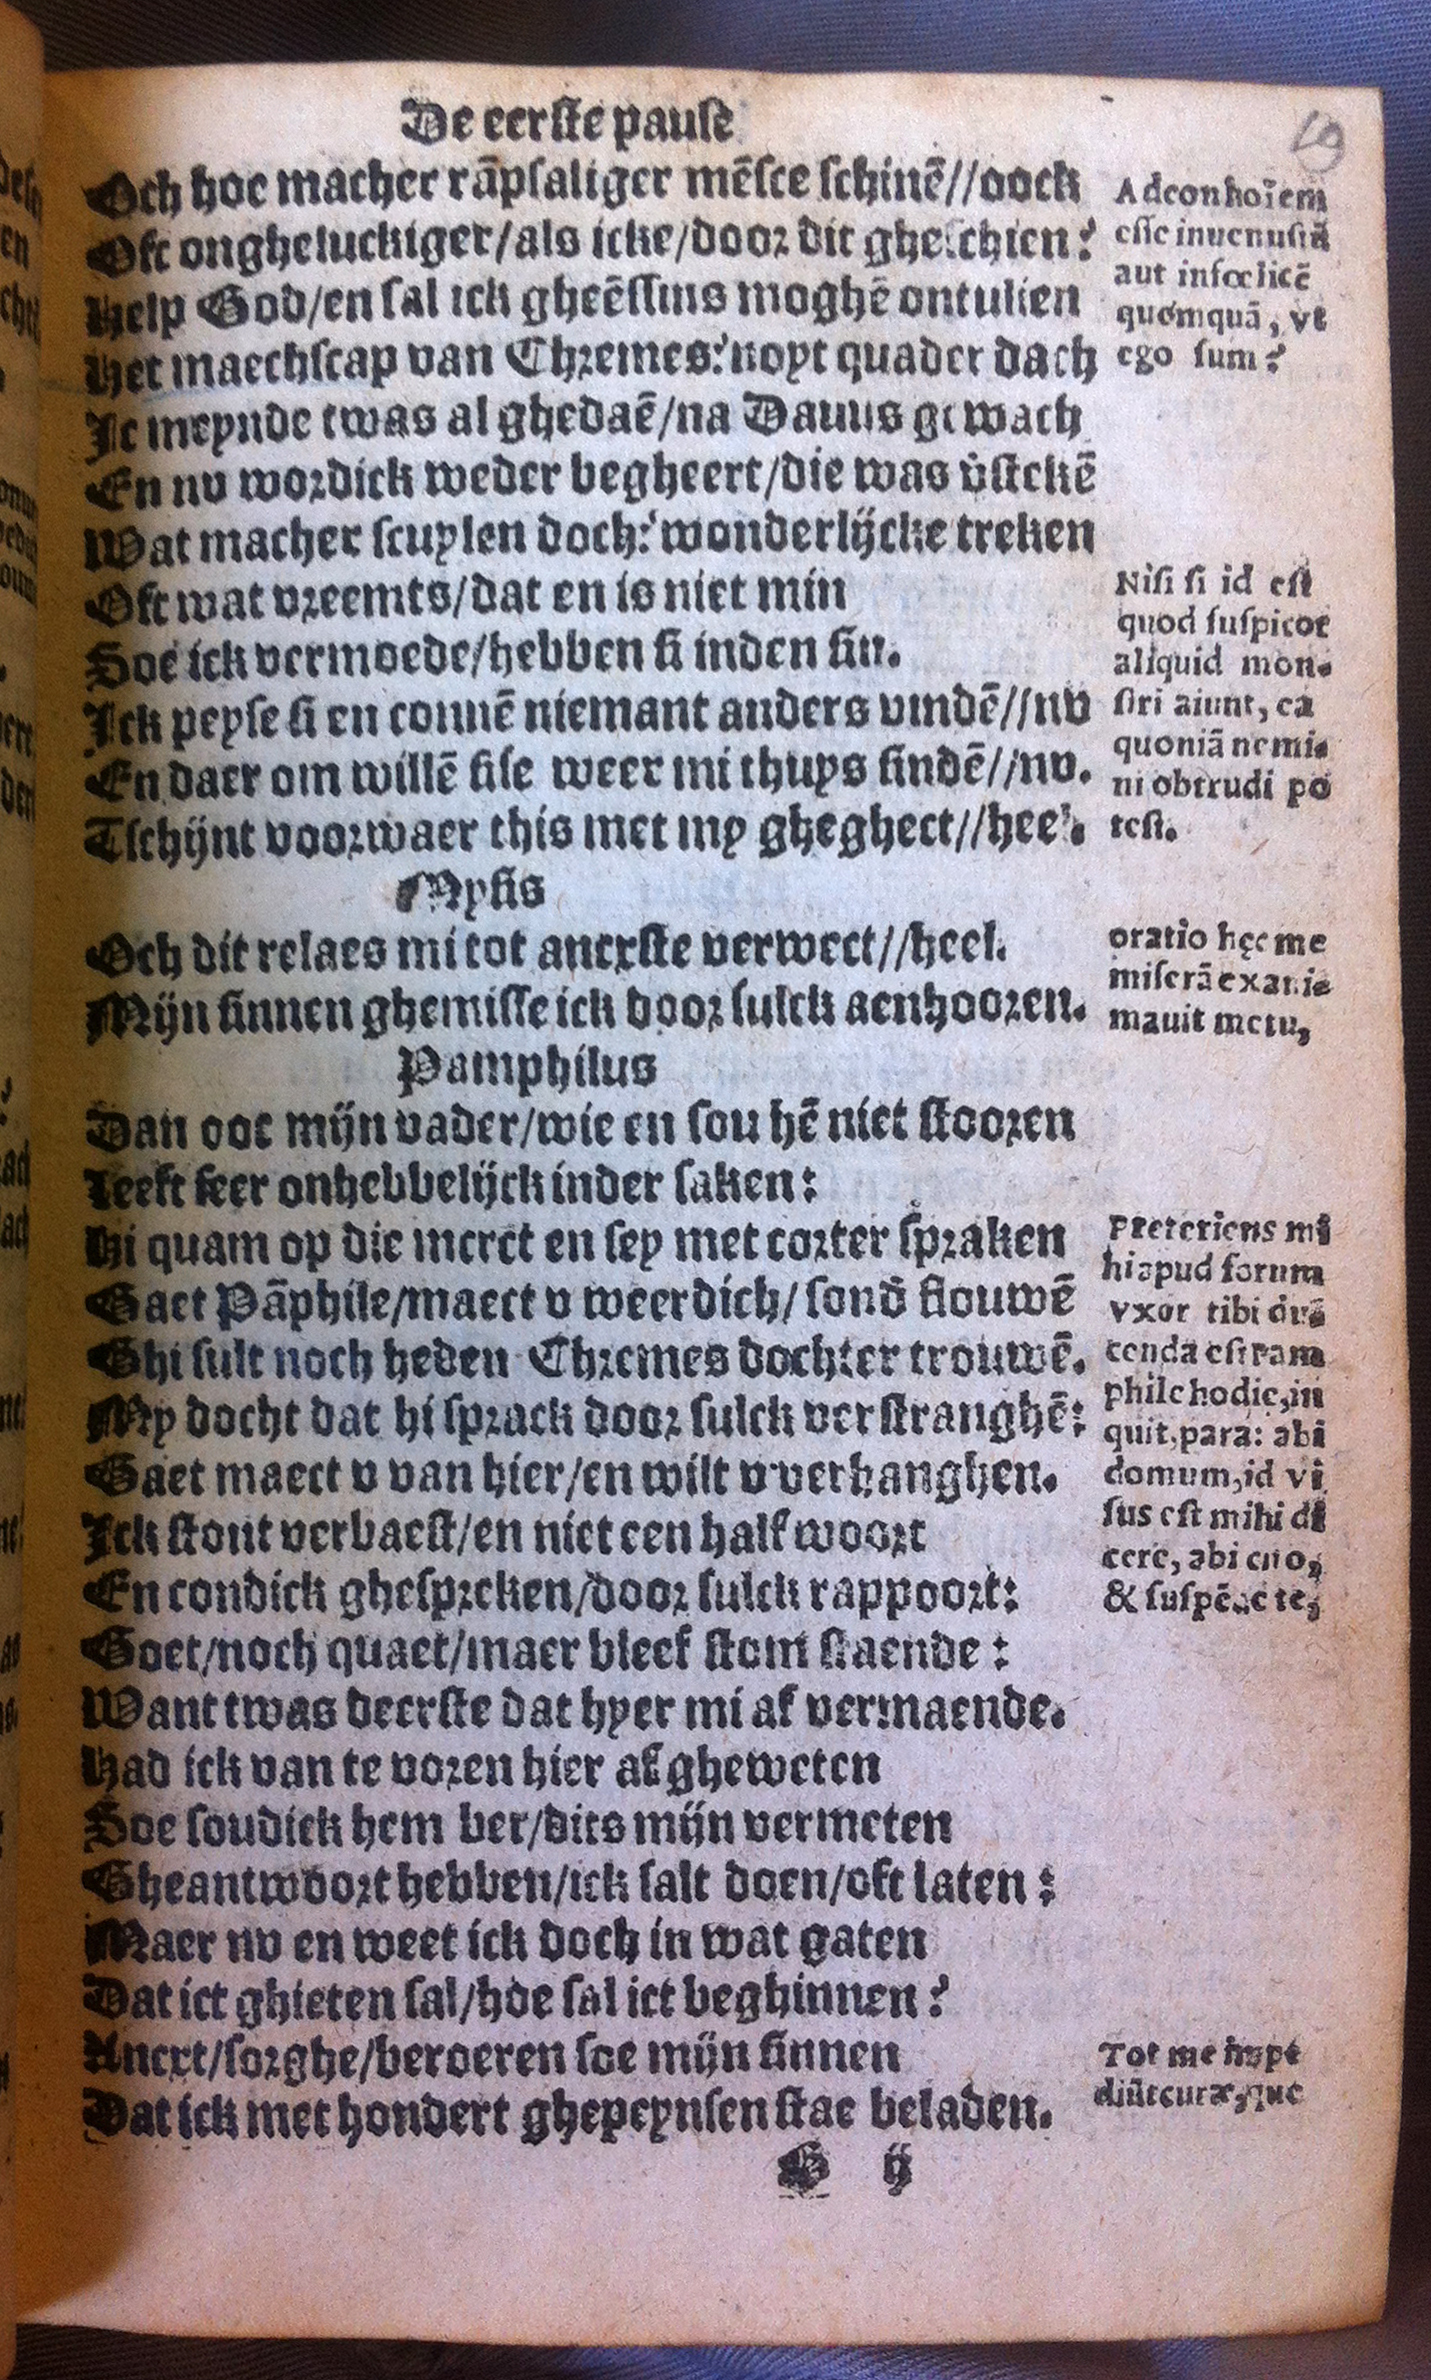 De eerste pause
Och hoe macher rāpsaliger mēsce schinē//oock
Oft ongheluckiger/als icke/door dit gheschien?
Help God/en sal ick gheēssins moghē ontulien
Het maechscap van Chremes? noyt quader dach
Ic meynde twas al ghedaē/na Dauus gewach
En nv wordick weder begheert/die was v̄stekē
Wat macher scuylen doch? wonderlijcke treken
Oft wat vreemts/dat en is niet min
Soe ick vermoede/hebben si inden sin.
Ick peyse si en connē niemant anders vindē//nv
En daer om willē sise weer mi thuys sindē//nv.
Tschijnt voorwaer this met my ghegheet//heel.
Mysis
Och dit relaes mi tot anexste verwect//heel.
Mijn sinnen ghemisse ick door sulck aenhooren.
Pamphilus
Van ooc mijn vader/wie en sou hē niet stooren
Leeft seer onhebbelijck inder saken:
Hi quam op die merct en sey met corter spraken
Gaet Pāphile/maect v weerdich/sond̄ flouwē
Ghi sult noch heden Chremes dochter trouwē.
My docht dat hi sprack door sulck verstranghē:
Gaet maect v van hier/en wilt v verhanghen.
Ick stont verbaest/en niet een half woort
En condick ghespreken/door sulck rappoort:
Goet/noch quaet/maer bleef stom staende:
Want twas deerste dat hyer mi af vermaende.
Had ick van te voren hier af gheweten
Soe soudick hem ber/dits mijn vermeten
Gheantwoort hebben/ick salt doen/oft laten:
Maer nv en weet ick doch in wat gaten
Dat ict ghieten sal/hoe sal ict beghinnen?
Anext/sorghe/beroeren soe mijn sinnen
Dat ick met hondert ghepeynsen stae beladen.
G ij
Adcon hoīem
esse inuenustū
aut infœlicē
quemquā, vt
ego sum?
Nisi si id est
quod suspicor
aliquid mon-
stri aiunt, ea
quoniā nemi-
ni obtrudi po
test.
oratio hęc me
miserā exani-
mauit metu,
Preteriens mi
hi apud forum
vxor tibi du-
cenda est Pam
phile hodie, in
quit, para: abi
domum, id vi
sus est mihi di
cere, abi cito,
& suspēde te,
Tot me impe
diūt curæ, que